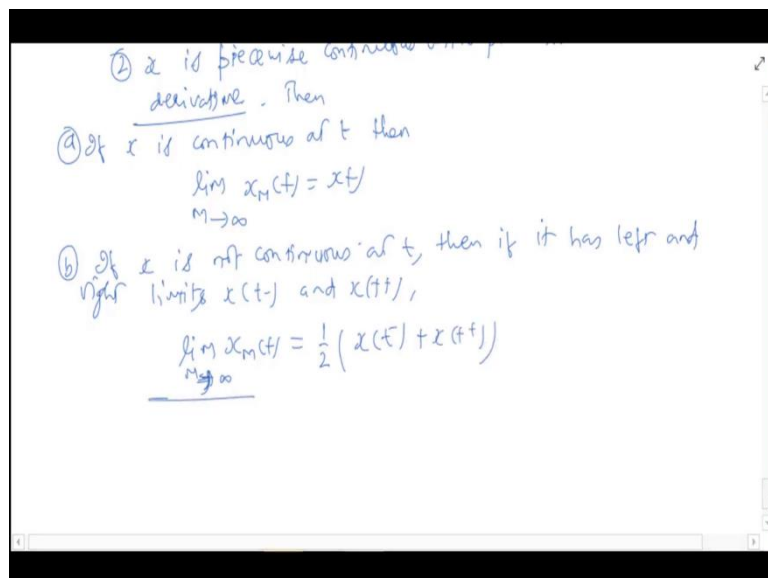 ② x is piecewise continuous
derivative. Then
ⓐ If x is continuous at t then
lim x_M(t) = x(t)
M→∞
ⓑ If x is not continuous at t, then if it has left and
right limits x(t-) and x(t+),
lim x_M(t) = 1/2 ( x(t-) + x(t+) )
M→∞